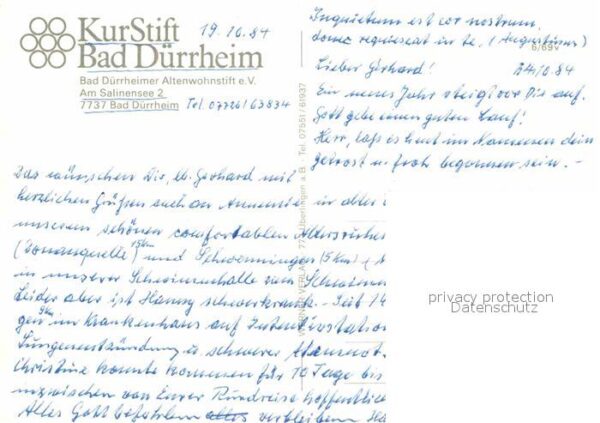 KurStift
Bad Dürrheim
19.10.84
Bad Dürrheimer Altenwohnstift e.V.
Am Salinensee 2
7737 Bad Dürrheim Tel. 07726/63834
Inquietum est cor nostrum,
donec requiescat in te, (Augustinus)
6/69v
Lieber Gerhard! 10.84
Ein neues Jahr steigt vor Dir auf.
Gott gebe einen guten Lauf!
Herr, laß es heut im Namen dein
getrost u. froh begonnen sein. –
Das wünschen Dir, lb. Gerhard mit
herzlichen Grüßen auch an in alter
unseren schönen comfortablen
und Schwenningen (5 km)
15 km
in unserer Schwimmhalle zum
Leider aber ist schwerkrank. Seit 14
im Krankenhaus auf Intensivstation
Lungenentzündung schwerer Atemnot.
Christine konnte kommen für 10 Tage bis
inzwischen von Eurer Rundreise hoffentlich
Alles Gott befohlen verbleiben
Tel. 07551/61937
privacy protection
Datenschutz